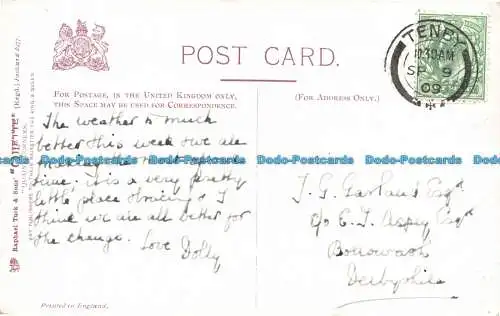 POST CARD.
FOR POSTAGE, IN THE UNITED KINGDOM ONLY,
THIS SPACE MAY BE USED FOR CORRESPONDENCE.
(FOR ADDRESS ONLY.)
TENBY
10.30AM
SP 9
09
Raphael Tuck & Sons' "OILETTE" [Regd.] Postcard
The weather is much
better this week & we are
having
time, it is a very pretty
little place & I
think we are all better for
the change. Love Dolly
J. G. Garland Esqre
c/o C. J. Esqre
Borrowash
Derbyshire
Printed in England.
Dodo-Postcards Dodo-Postcards Dodo-Postcards Dodo-Postcards